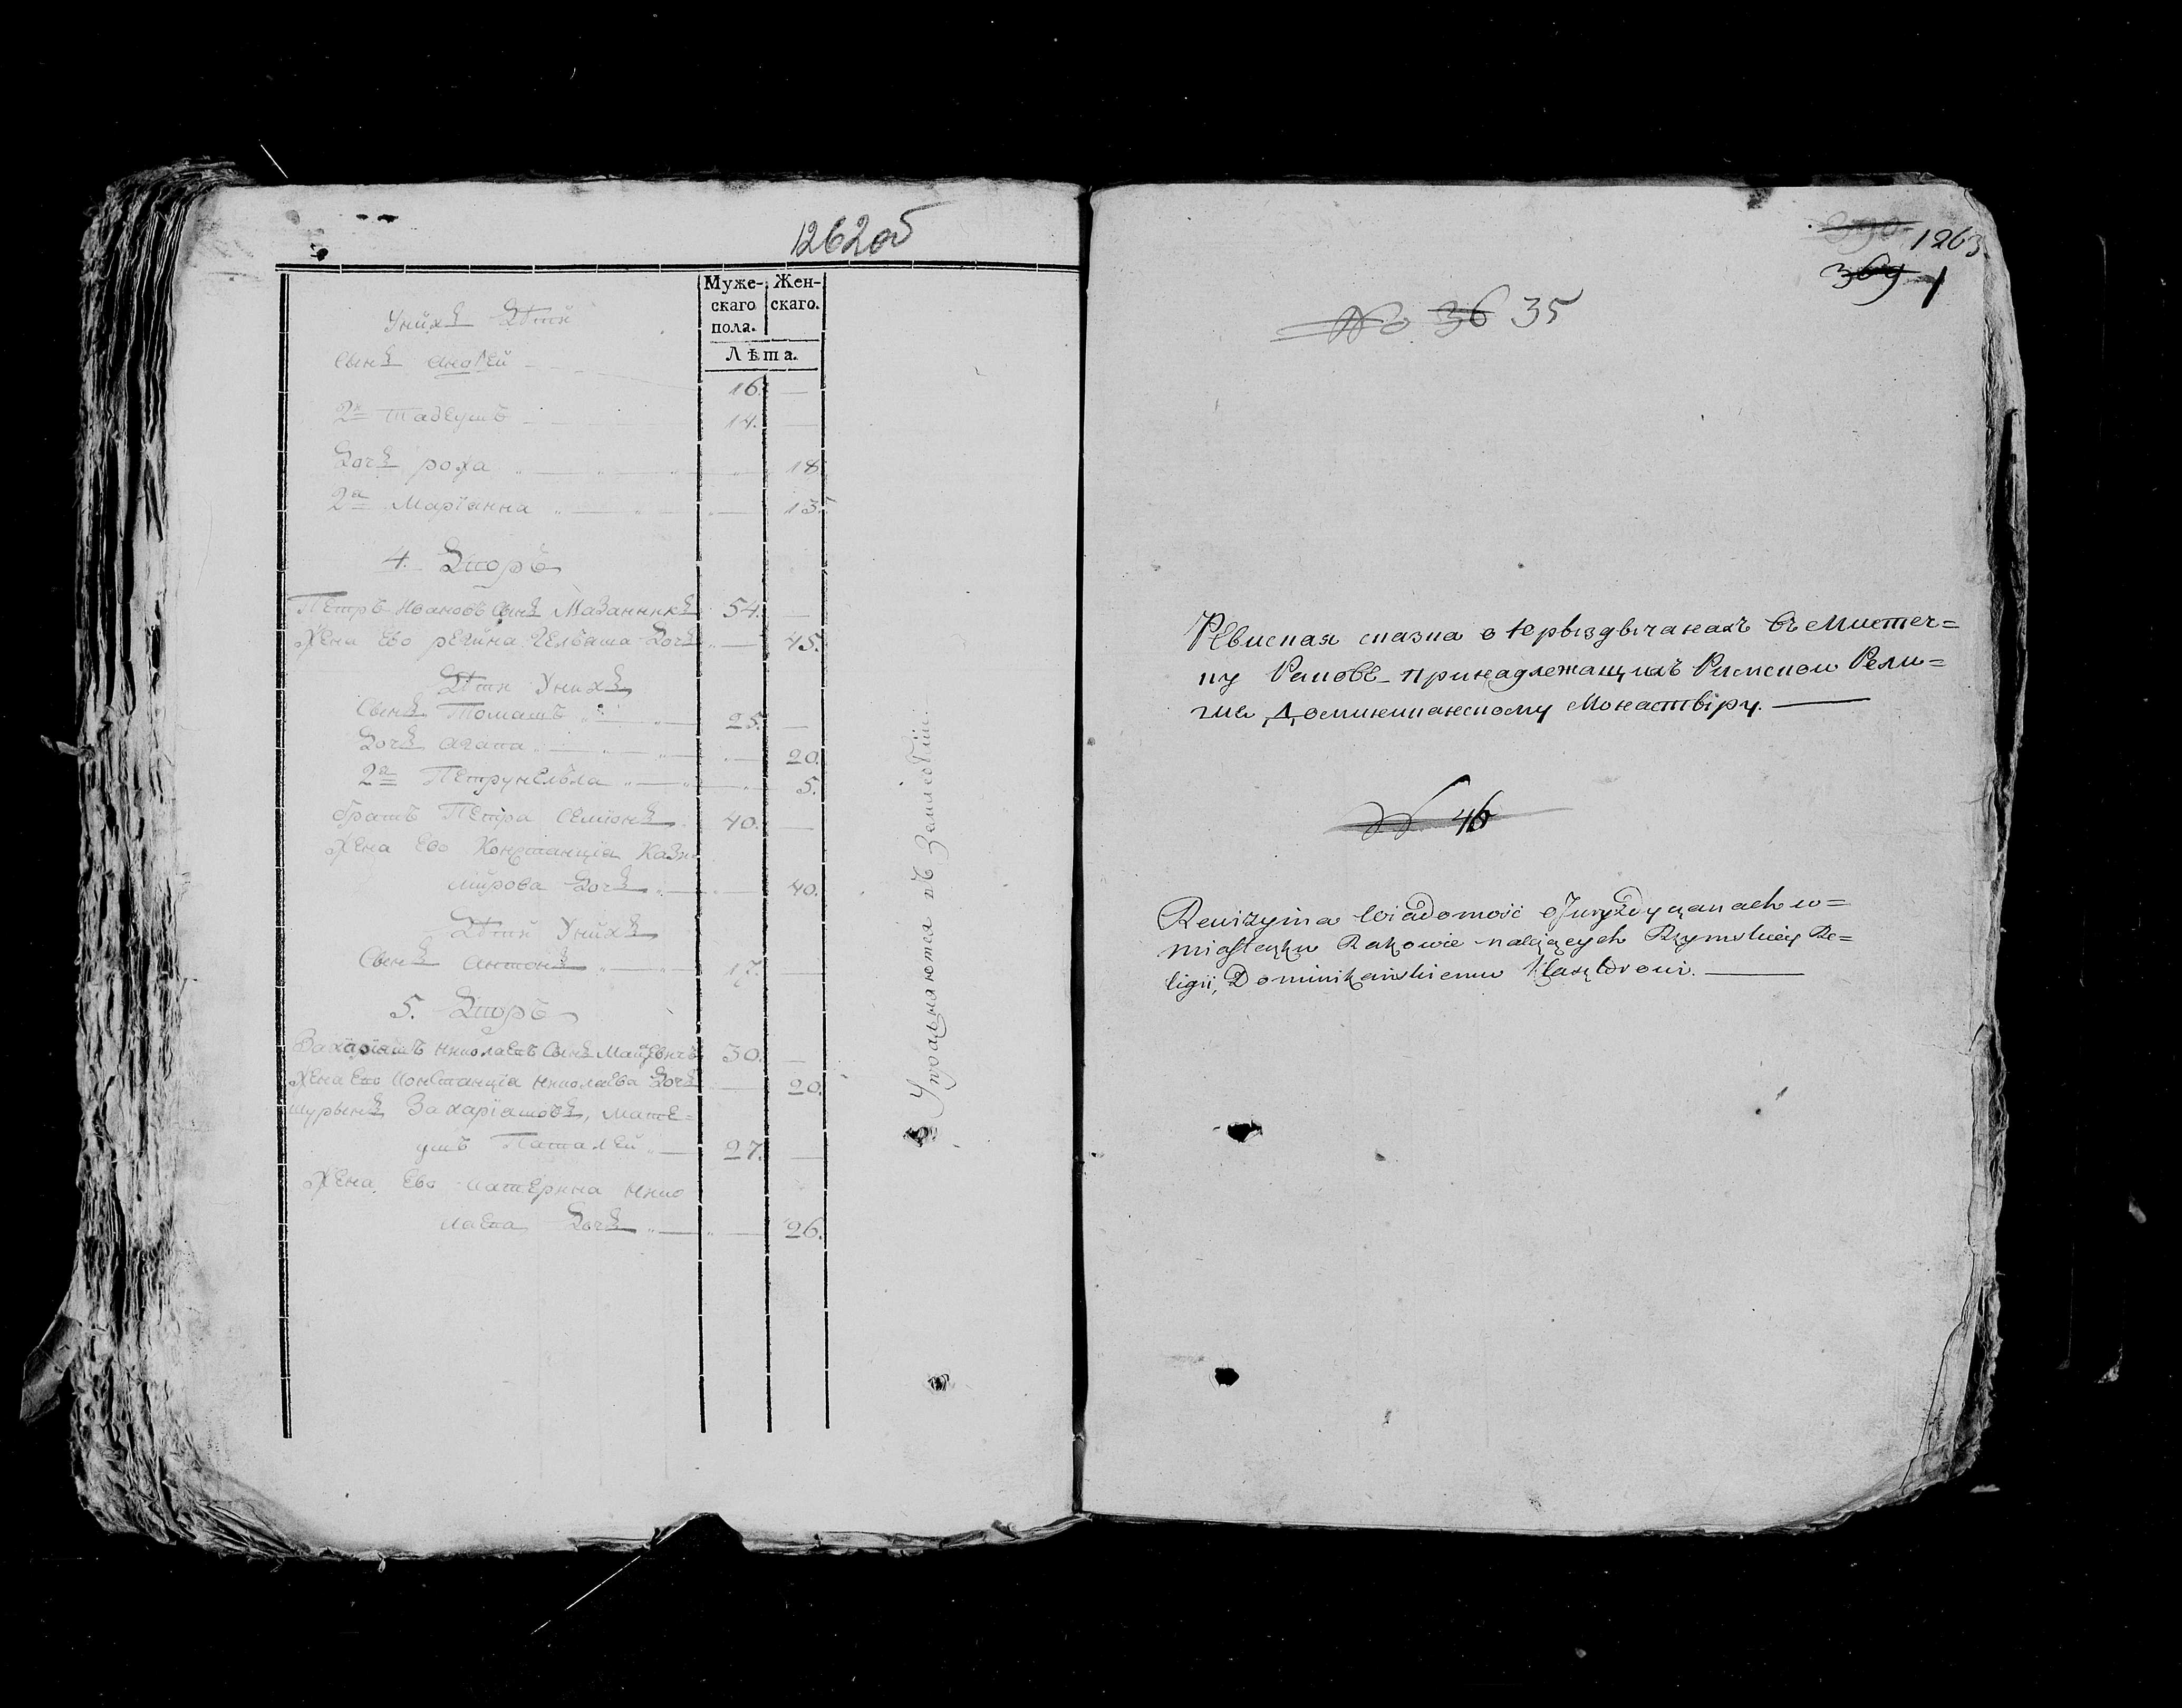 1262 об
Муже- Жен-
скаго скаго.
пола.
Лѣта.
Унихъ Дѣти
Сынъ 16. —
2й Тадеушъ 14. —
Дочь 18
2я Маріанна 13.
4. Дворъ
Петръ Ивановъ Сынъ 54. —
Жена Ево Регина Дочь — 45.
Дѣти Унихъ
Сынъ Томашъ 25. —
Дочь Агата — 20.
2я Петрунелѣла — 5.
братъ Петра Семіонъ 40. —
Жена Ево Констанція Кази-
мирова Дочь — 40.
Дѣти Унихъ
Сынъ Антонъ 17.
5. Дворъ
Захаріашъ Николаевъ Сынъ 30. —
Жена Ево Констанція Николаева Дочь — 20.
шурынъ Захаріашовъ, Мате-
ушъ 27. —
Жена Ево Катерина Нико
лаева Дочь — 26.
Упражняются въ Земледѣліи.
1263
369 1
No 36 35
Ревиская сказка о Юрыздычанахъ въ Мистеч=
ку Ракове принадлежащихъ Римской Рели=
гии Доминиканскому Монастыру. —
N 46
Rewizyina Wiadomość o Juryzdyczanach w=
miasteczku Rakowie należących Rzymskiey Re=
ligii, Dominikańskiemu Klasztorowi. —